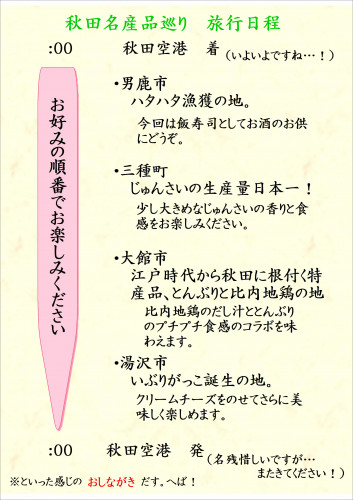 秋田名産品巡り 旅行日程
:00 秋田空港 着(いよいよですね…!)
お好みの順番でお楽しみください
・男鹿市
ハタハタ漁獲の地。
今回は飯寿司としてお酒のお供
にどうぞ。
・三種町
じゅんさいの生産量日本一!
少し大きめなじゅんさいの香りと食
感をお楽しみください。
・大館市
江戸時代から秋田に根付く特
産品、とんぶりと比内地鶏の地
比内地鶏のだし汁ととんぶり
のプチプチ食感のコラボを味
わえます。
・湯沢市
いぶりがっこ誕生の地。
クリームチーズをのせてさらに美
味しく楽しめます。
:00 秋田空港 発(名残惜しいですが…
またきてください!)
※といった感じの おしながき だす。へば!